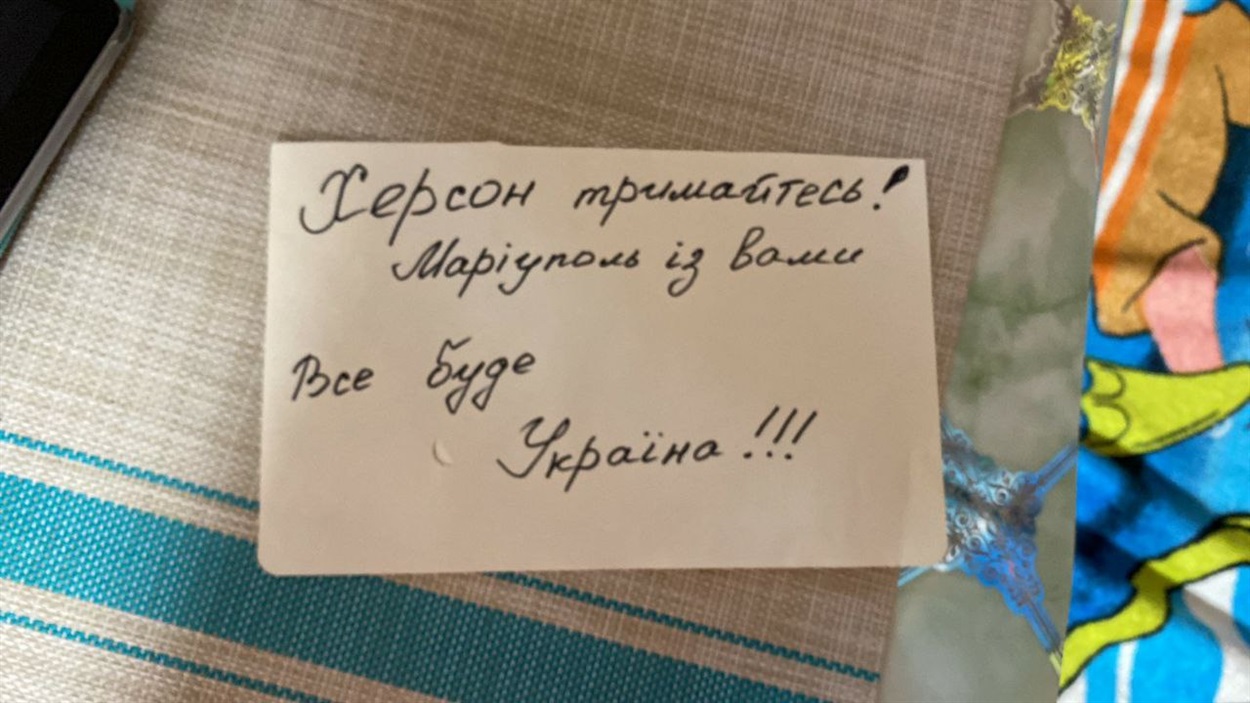 Херсон тримайтесь!
Маріуполь із вами
Все буде
Україна!!!